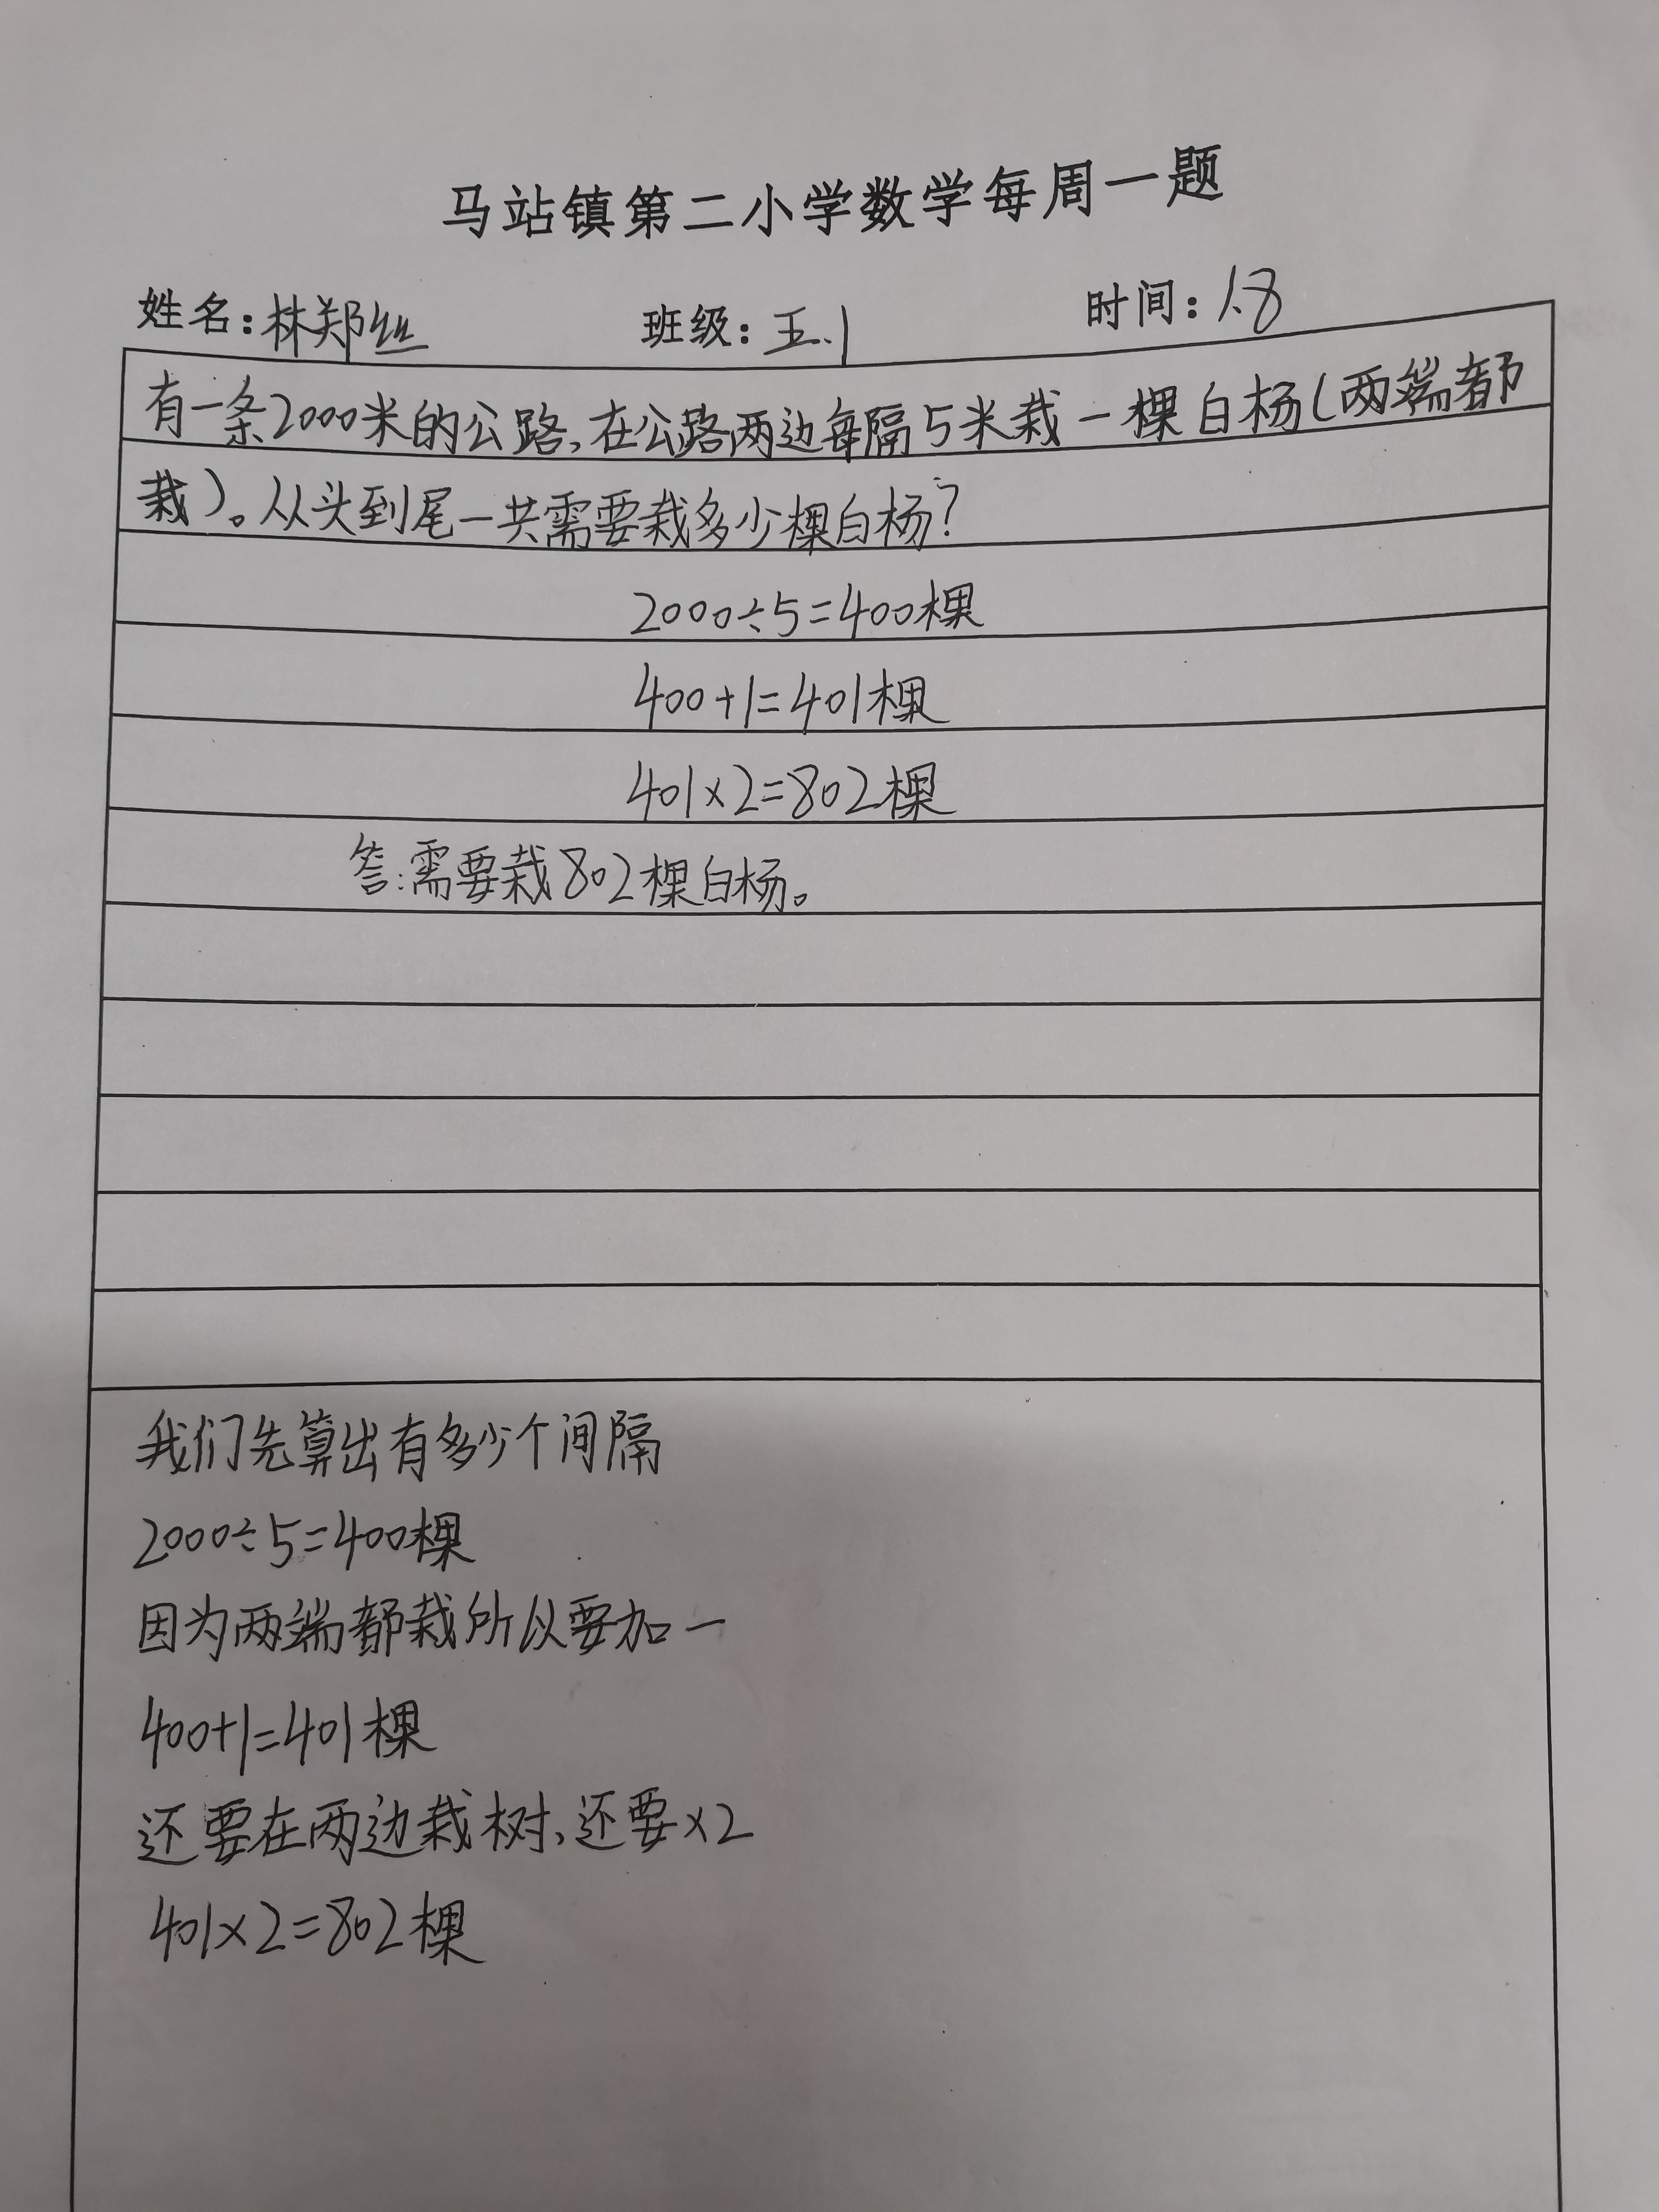 马站镇第二小学数学每周一题
姓名:林郑丝 班级:五.1 时间:1.8
有一条2000米的公路,在公路两边每隔5米栽一棵白杨(两端都
栽)。从头到尾一共需要栽多少棵白杨?
2000÷5=400棵
400+1=401棵
401×2=802棵
答:需要栽802棵白杨。
我们先算出有多少个间隔
2000÷5=400棵
因为两端都栽所以要加一
400+1=401棵
还要在两边栽树,还要×2
401×2=802棵